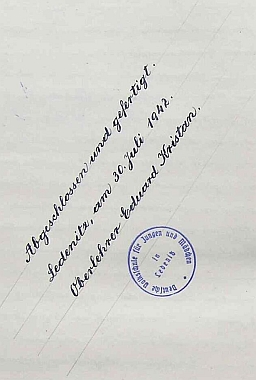 Abgeschlossen und gefertigt.
Ledenitz, am 30. Juli 1942.
Oberlehrer Eduard Kristan.
Deutsche Volksschule für Jungen und Mädchen
in
Ledenitz